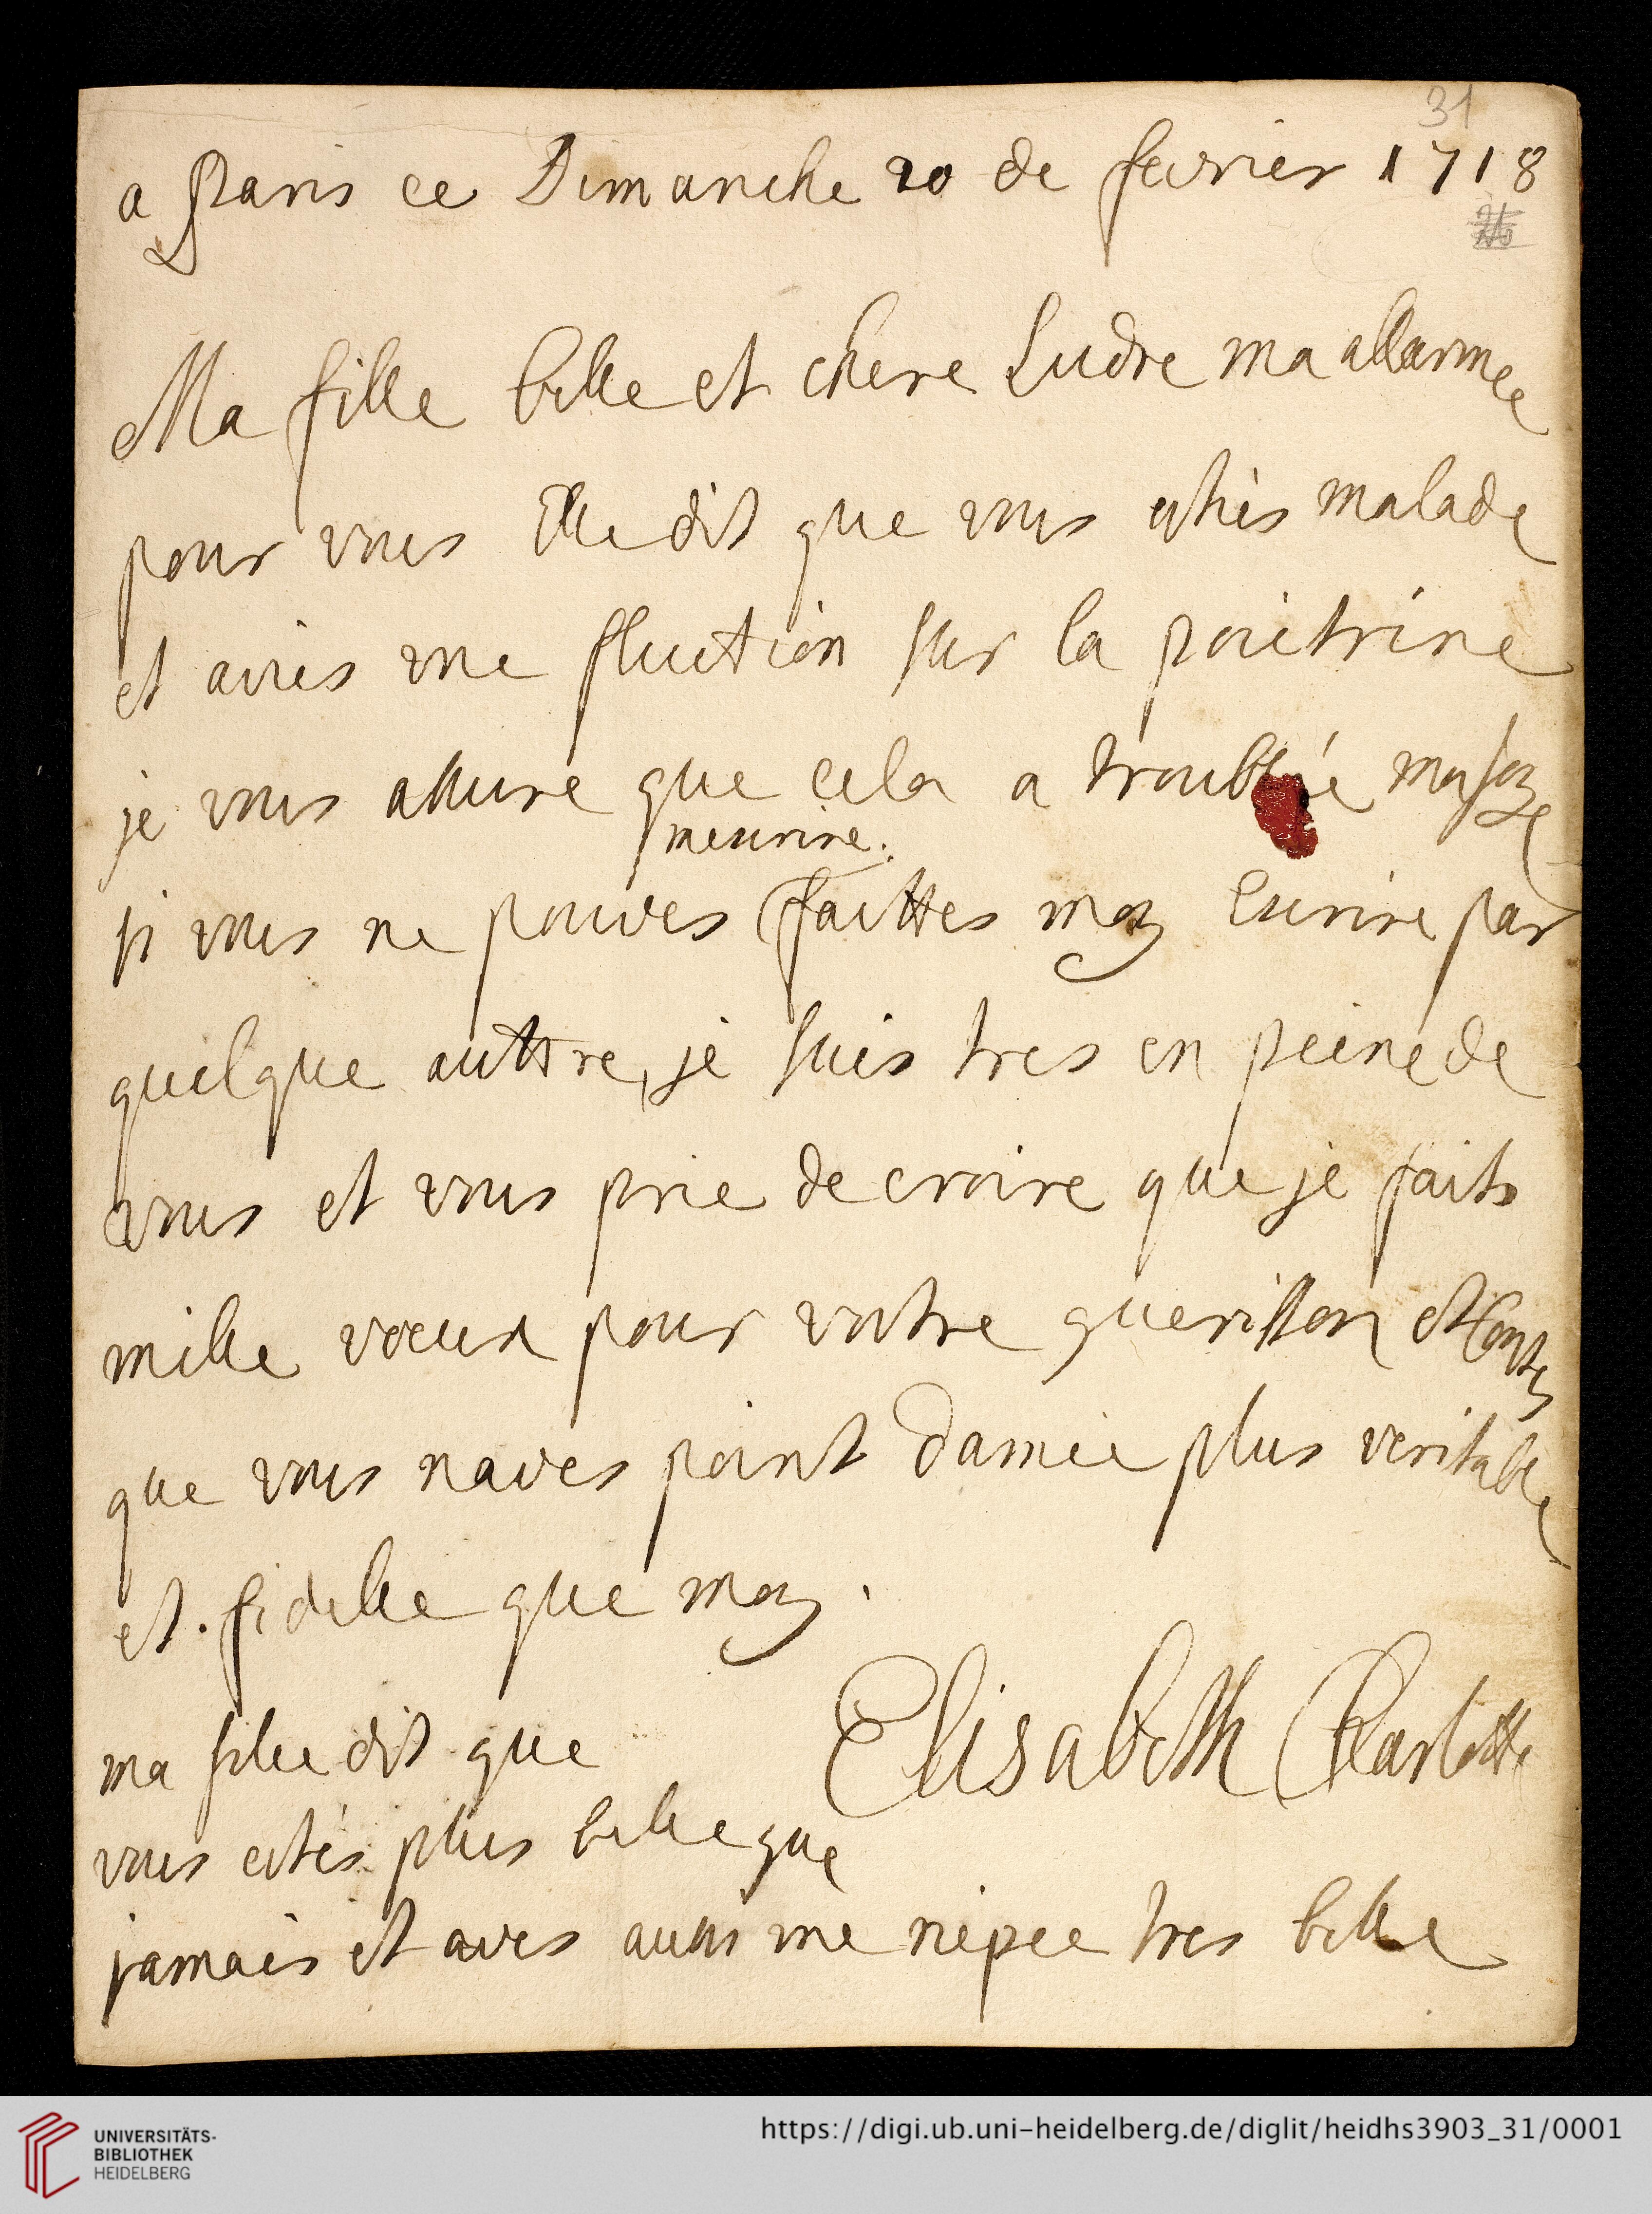 31
a Paris ce Dimanche 20 de fevrier 1718
Ma fille belle et chere Ludre ma allarmee
pour vous Elle dit que vous esties malade
et avies une fluction sur la poitrine
je vous assure que cela a troublée ma
mescrire.
si vous ne pouves faittes moy Escrire par
quelque auttre, je suis tres en peine de
vous et vous prie de croire que je faits
mille vœux pour vostre guerisson et
que vous naves point damie plus veritable
et. fidelle que moy.
Elisabeth Charlotte
ma fille dit que
vous estes plus belle que
jamais et aves aussi une niepce tres belle
UNIVERSITÄTS-
BIBLIOTHEK
HEIDELBERG
https://digi.ub.uni-heidelberg.de/diglit/heidhs3903_31/0001